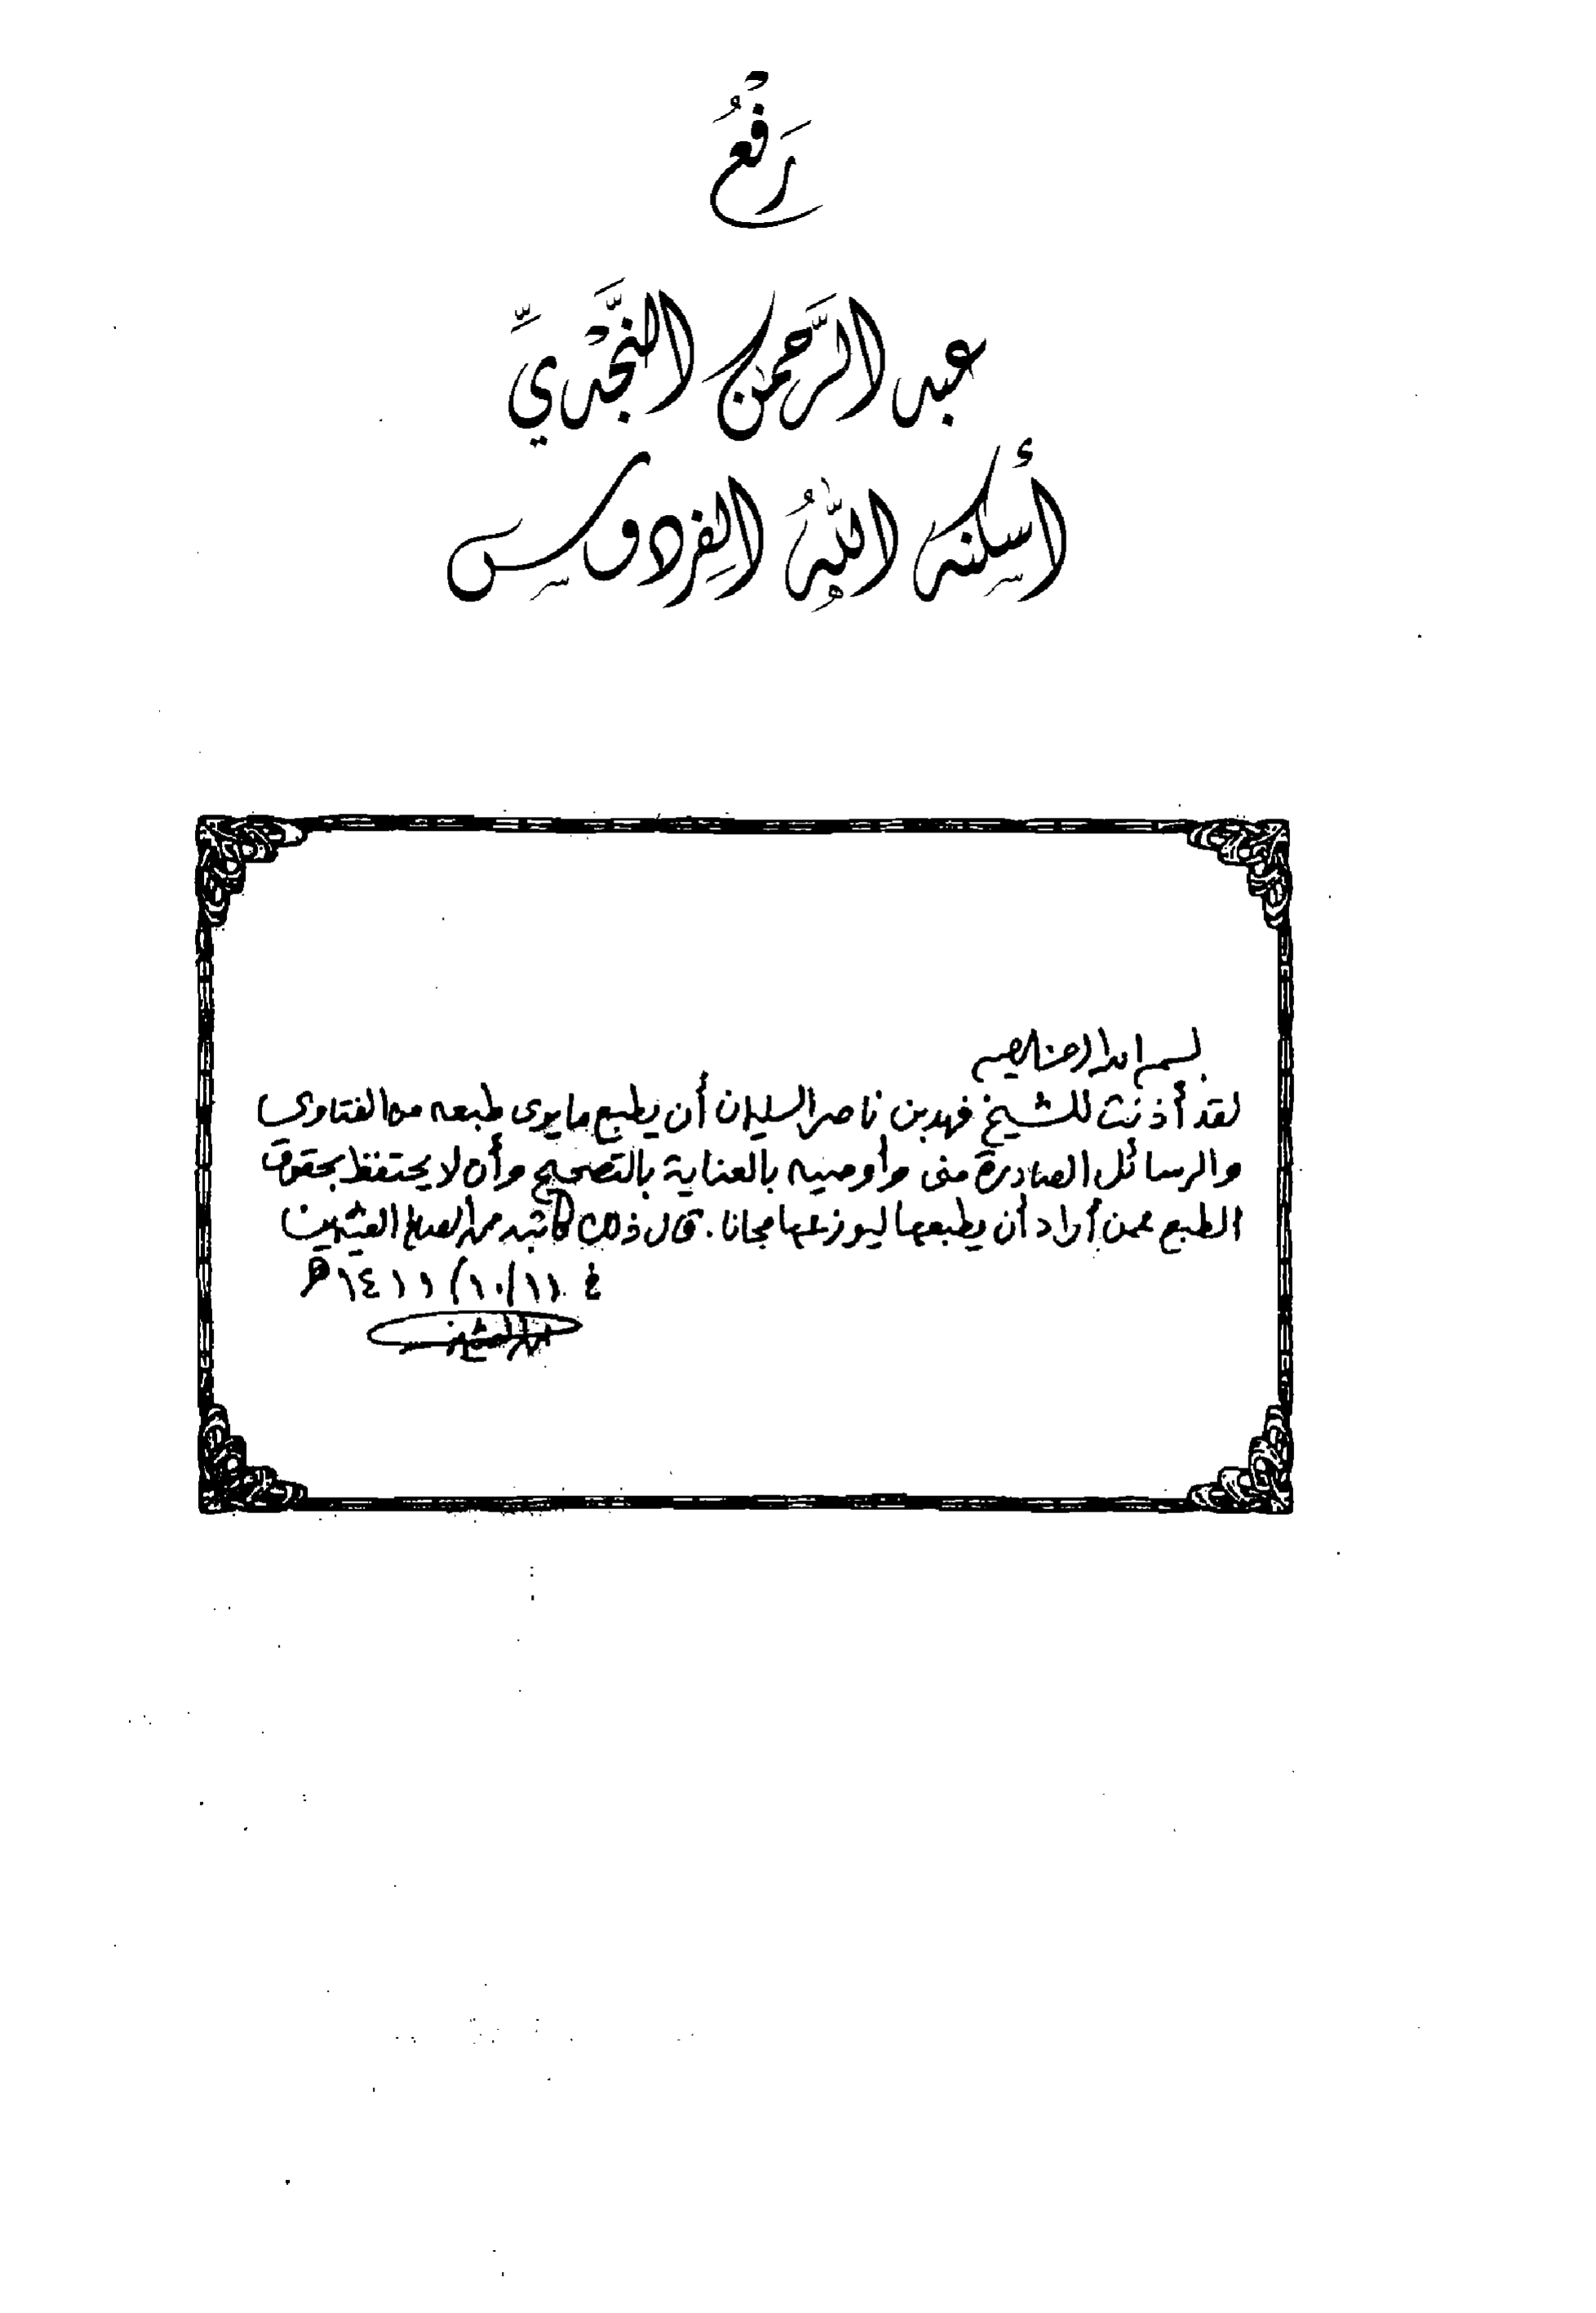 رَفْعُ
عبد الرَّحمن النَّجْدِيِّ
أسكنه اللهُ الفِردوس
بسم الله الرحمن الرحيم
لقد أذنت للشيخ فهد بن ناصر السليمان أن يطبع ما يرى طبعه من الفتاوى
والرسائل الصادرة مني وأوصيه بالعناية بالتصحيح وأن لا يحتفظ بحقوق
الطبع عمن أراد أن يطبعها ليوزعها مجانا. قال ذلك كاتبه محمد الصالح العثيمين
في ١١/١٠/١٤١١ هـ